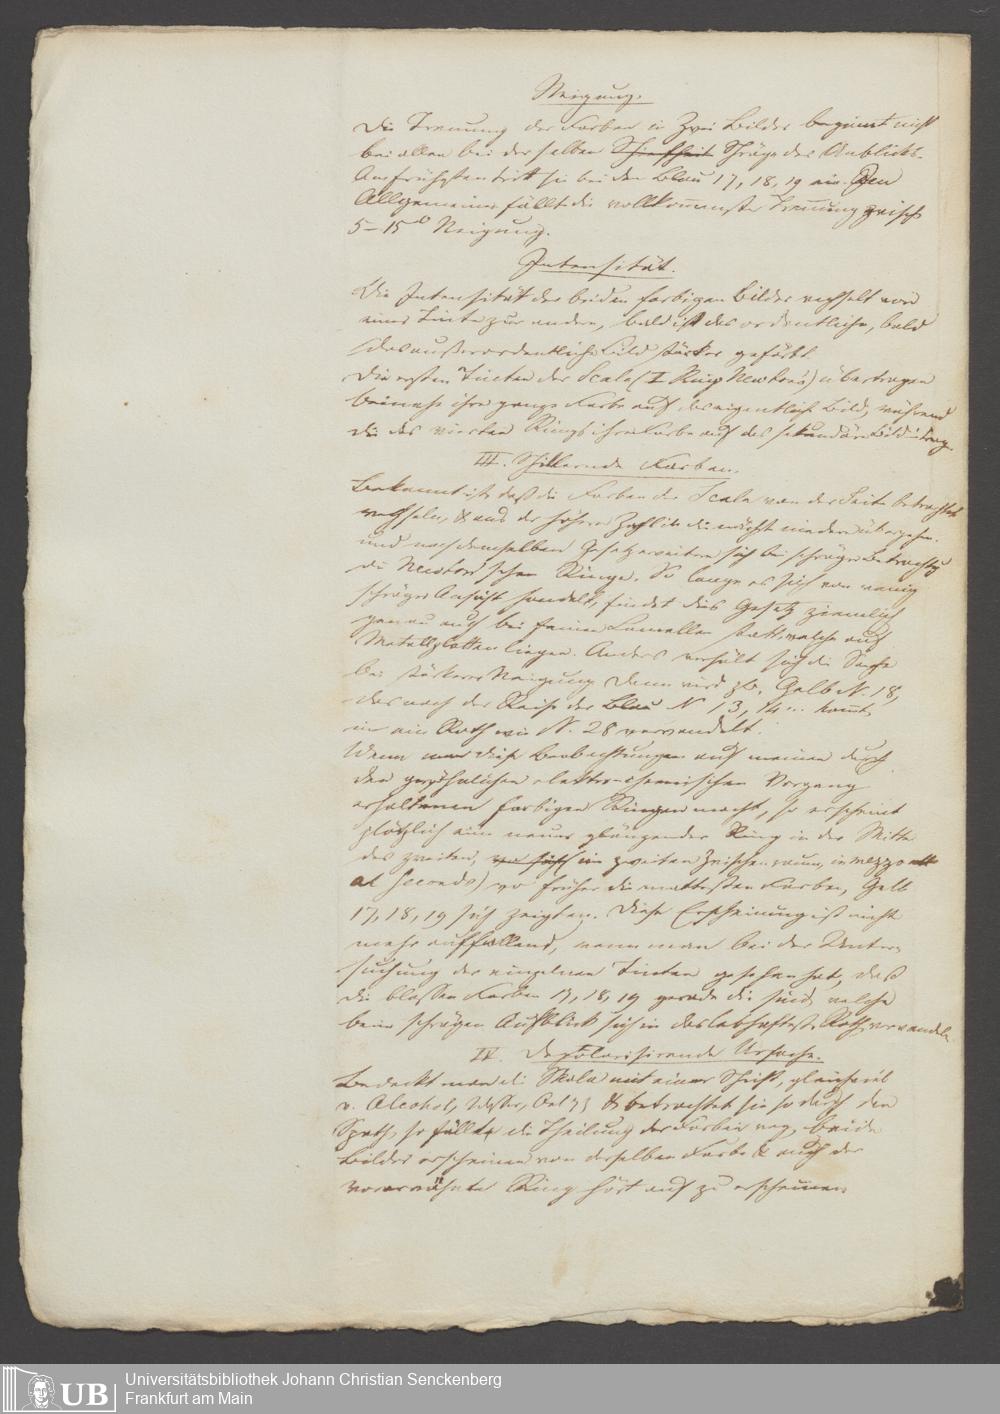 Neigung.
Die Trennung der Farben in Zwei Bilder beginnt nicht
bei allen bei der selben Schiefheit Schräge des Anblicks.
Am frühsten tritt sie bei den Blau 17, 18, 19 ein. Im
Allgemeinen fällt die vollkommenste Trennung zwisch
5–15° Neigung.
Intensität.
Die Intensität der beiden farbigen Bilder wechselt von
einer Tinte zur andern, bald ist das ordentliche, bald
das außerordentliche Bild stärker gefärbt.
Die ersten Tinten der Scala (I Ring Newtons) übertragen
beinahe ihre ganze Farbe auf das eigentliche Bild, während
die des vierten Rings ihre Farbe auf das sekundäre Bild
III. Schillernde Farben.
Bekannt ist, daß die Farben der Scala von der Seite betrachtet
wechseln, & aus der höhern Zahl in die nächst niedere übergehn.
und nach demselben Gesetz erweitern sich bei schräger Betrachtung
die Newton'schen Ringe. So lange es sich von wenig
schräger Ansicht handelt, findet dies Gesetz ziemlich
genau auch bei feinen Lamellen statt, welche auf
Metallplatten liegen. Anders verhält sich die Sache
bei stärkerer Neigung denn wird zb. Gelb N. 18,
das nach der Reihe der Blau N 13, 14... kommt
in ein Roth wie N. 28 verwandelt.
Wenn man diese Beobachtungen auf meinen durch
den gewöhnlichen elektro-chemischen Vorgang
erhaltenen farbigen Ringen macht, so erscheint
plötzlich ein neuer glänzender Ring in der Mitte
des zweiten, im zweiten Zwischenraum, in mezzo
al secondo) wo früher die mattesten Farben, Gelb
17, 18, 19 sich zeigten. Diese Erscheinung ist nicht
mehr auffallend, wenn man bei der Unter-
suchung der einzelnen Tinten gesehen hat, daß
die blassen Farben 17, 18, 19 gerade die sind, welche
beim schrägen Anblick sich in das lebhafteste Roth verwandeln.
IV. Depolarisirende Ursache.
Bedeckt man die Skala mit einer Schicht, gleichviel
v. Alcohol, Wasser, Oel & betrachtet sie so durch den
Spath, so fällt die Theilung der Farben weg, beide
Bilder erscheinen von derselben Farbe & auch der
vorerwähnte Ring hört auf zu erscheinen
UB
Universitätsbibliothek Johann Christian Senckenberg
Frankfurt am Main